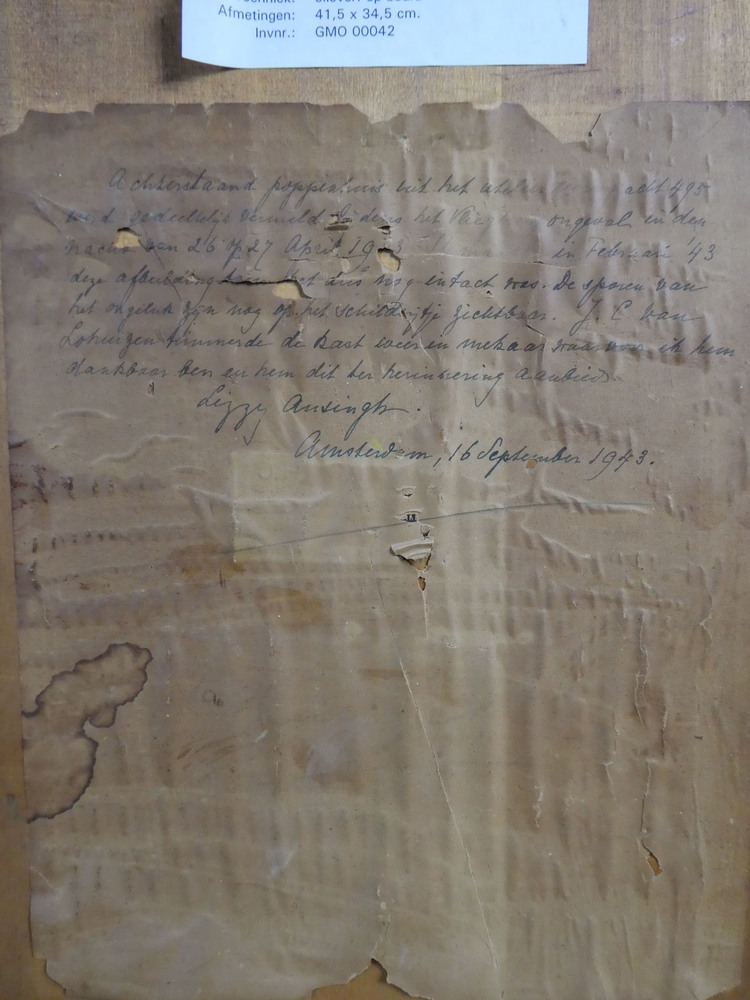 Afmetingen: 41,5 x 34,5 cm.
Invnr.: GMO 00042
Achterstaand poppenhuis uit het atelier acht 495
werd gedeeltelijk vernield tijdens het Vlieg ongeval in den
nacht van 26 op 27 April 1943 in Februari '43
deze afbeelding toen het dus nog intact was. De sporen van
het ongeluk zijn nog op het schilderijtje zichtbaar. J. C. van
timmerde de kast weer in mekaar waarvoor ik hem
dankbaar ben en hem dit ter herinnering aanbied.
Lizzy Ansingh.
Amsterdam, 16 September 1943.